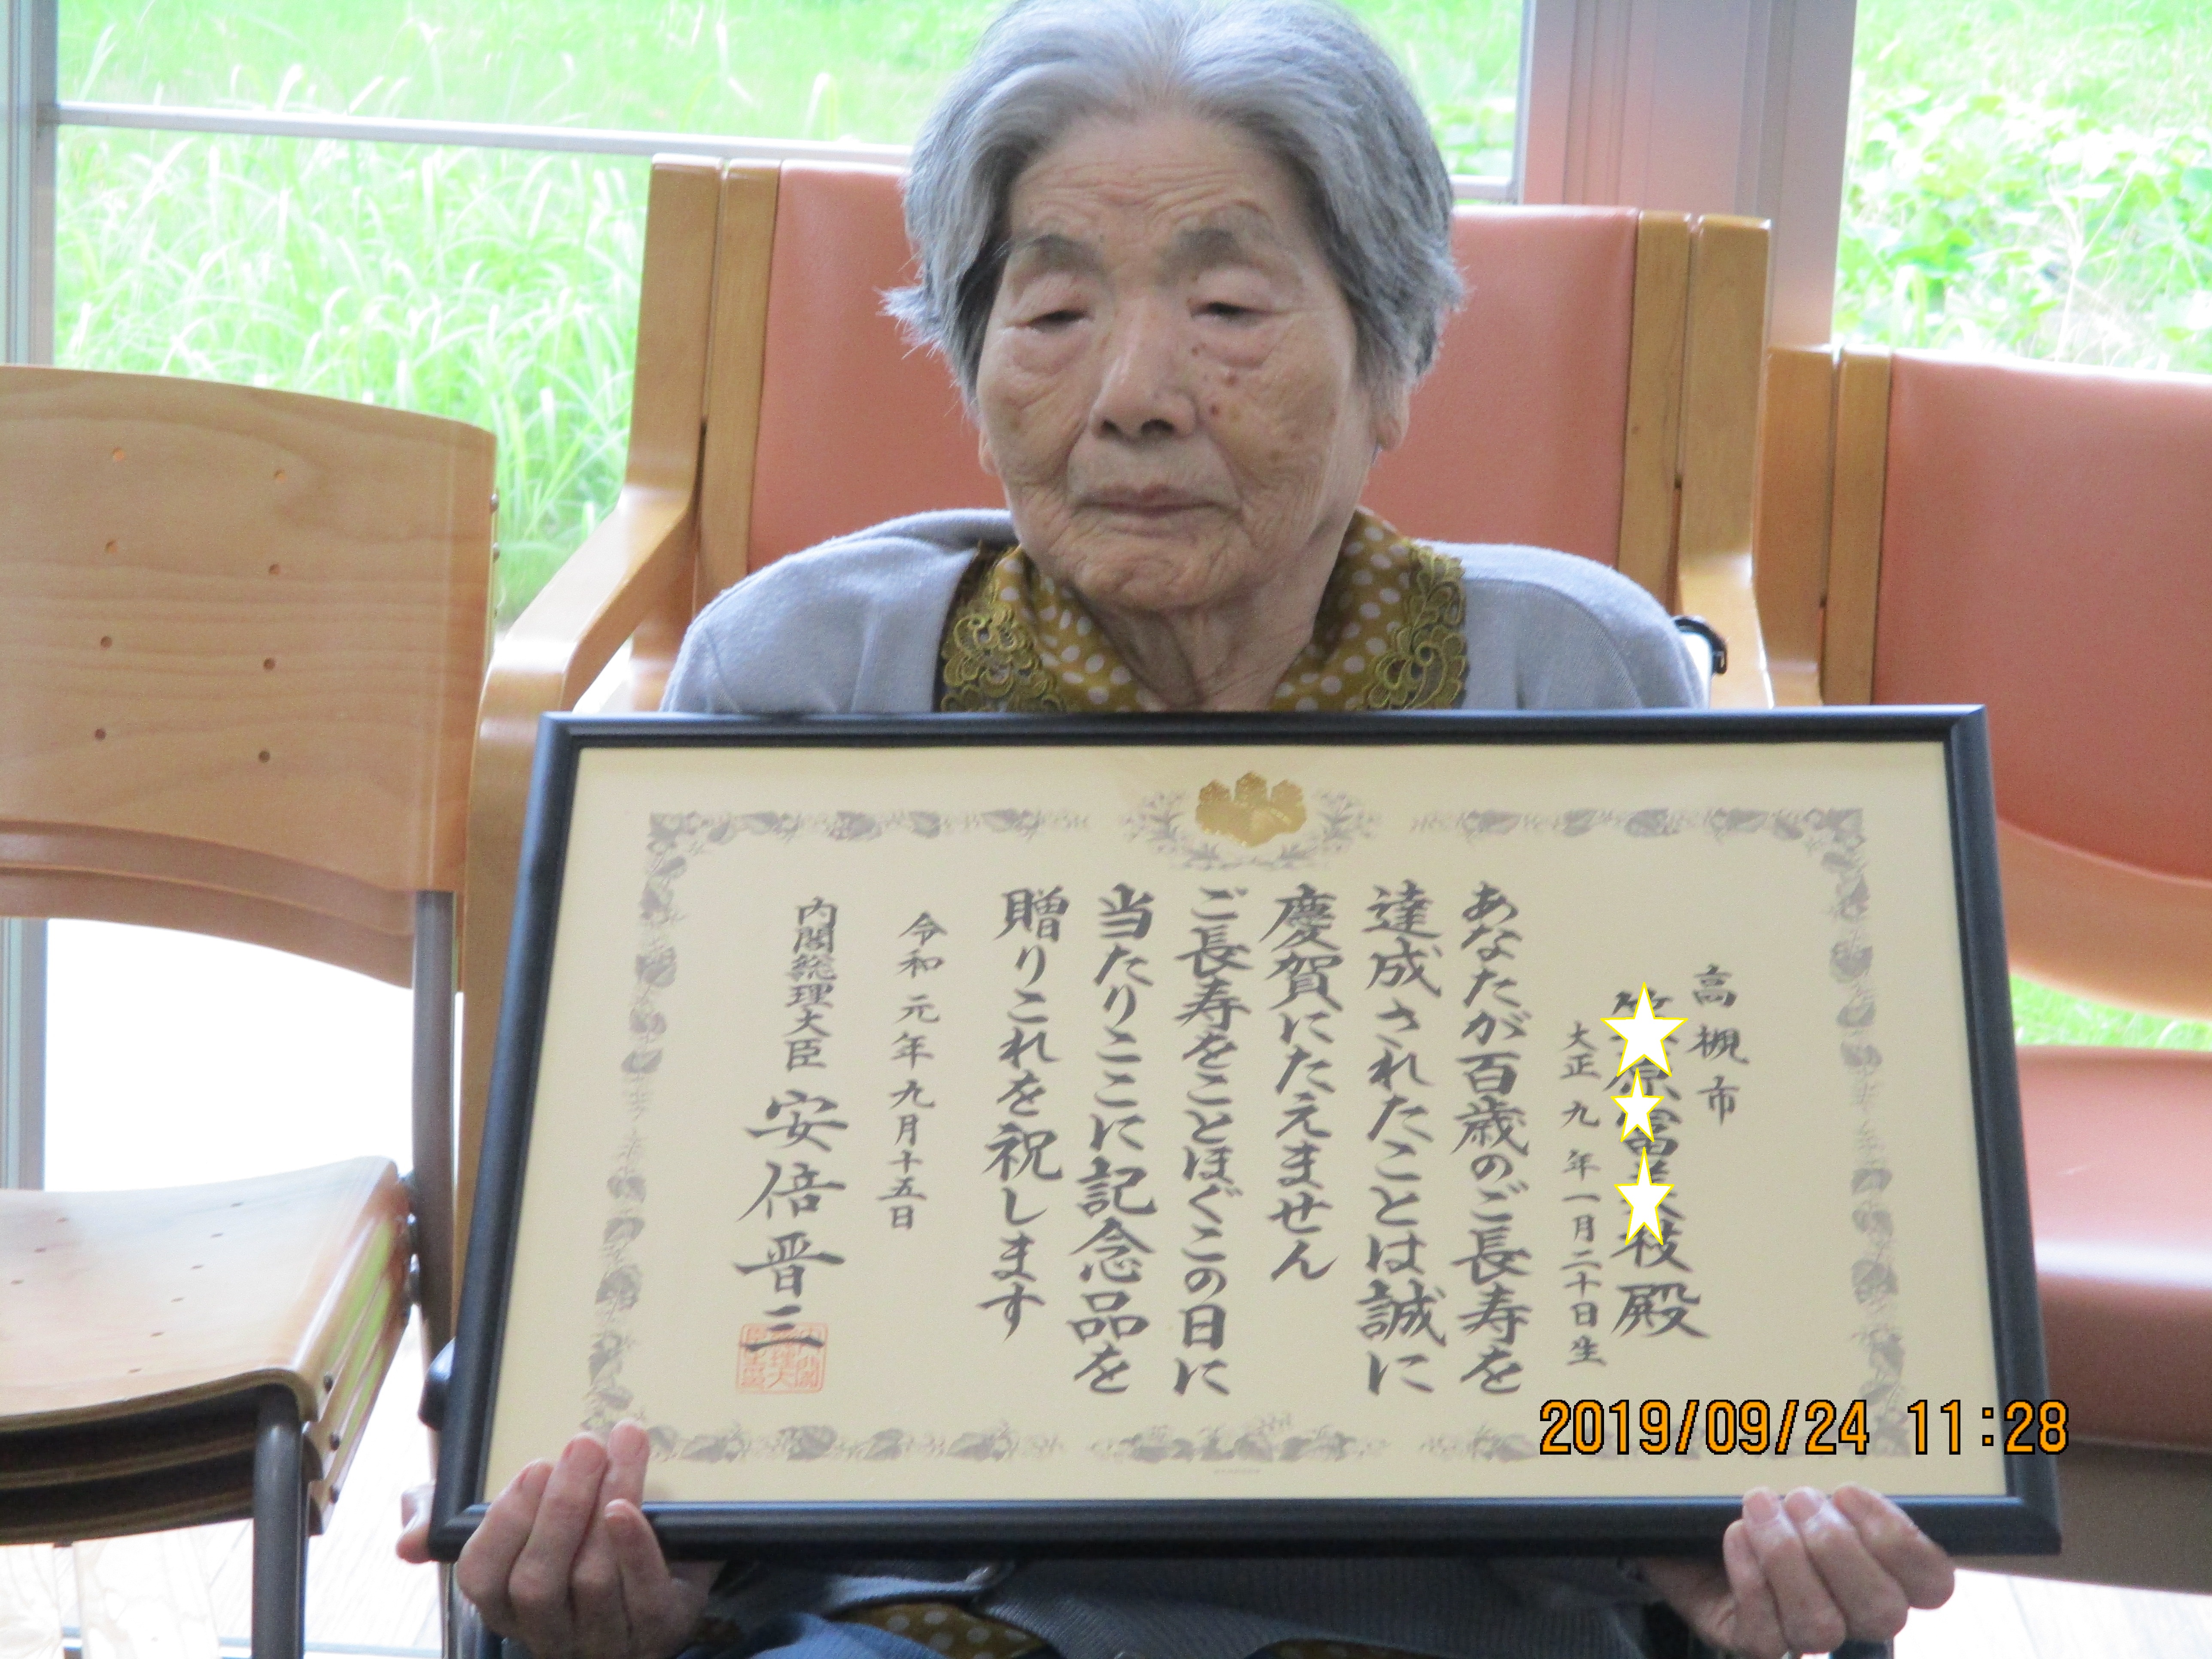 高槻市
原富 枝殿
大正九年一月二十日生
あなたが百歳のご長寿を
達成されたことは誠に
慶賀にたえません
ご長寿をことほぐこの日に
当たりここに記念品を
贈りこれを祝します
令和元年九月十五日
内閣総理大臣 安倍晋三
2019/09/24 11:28